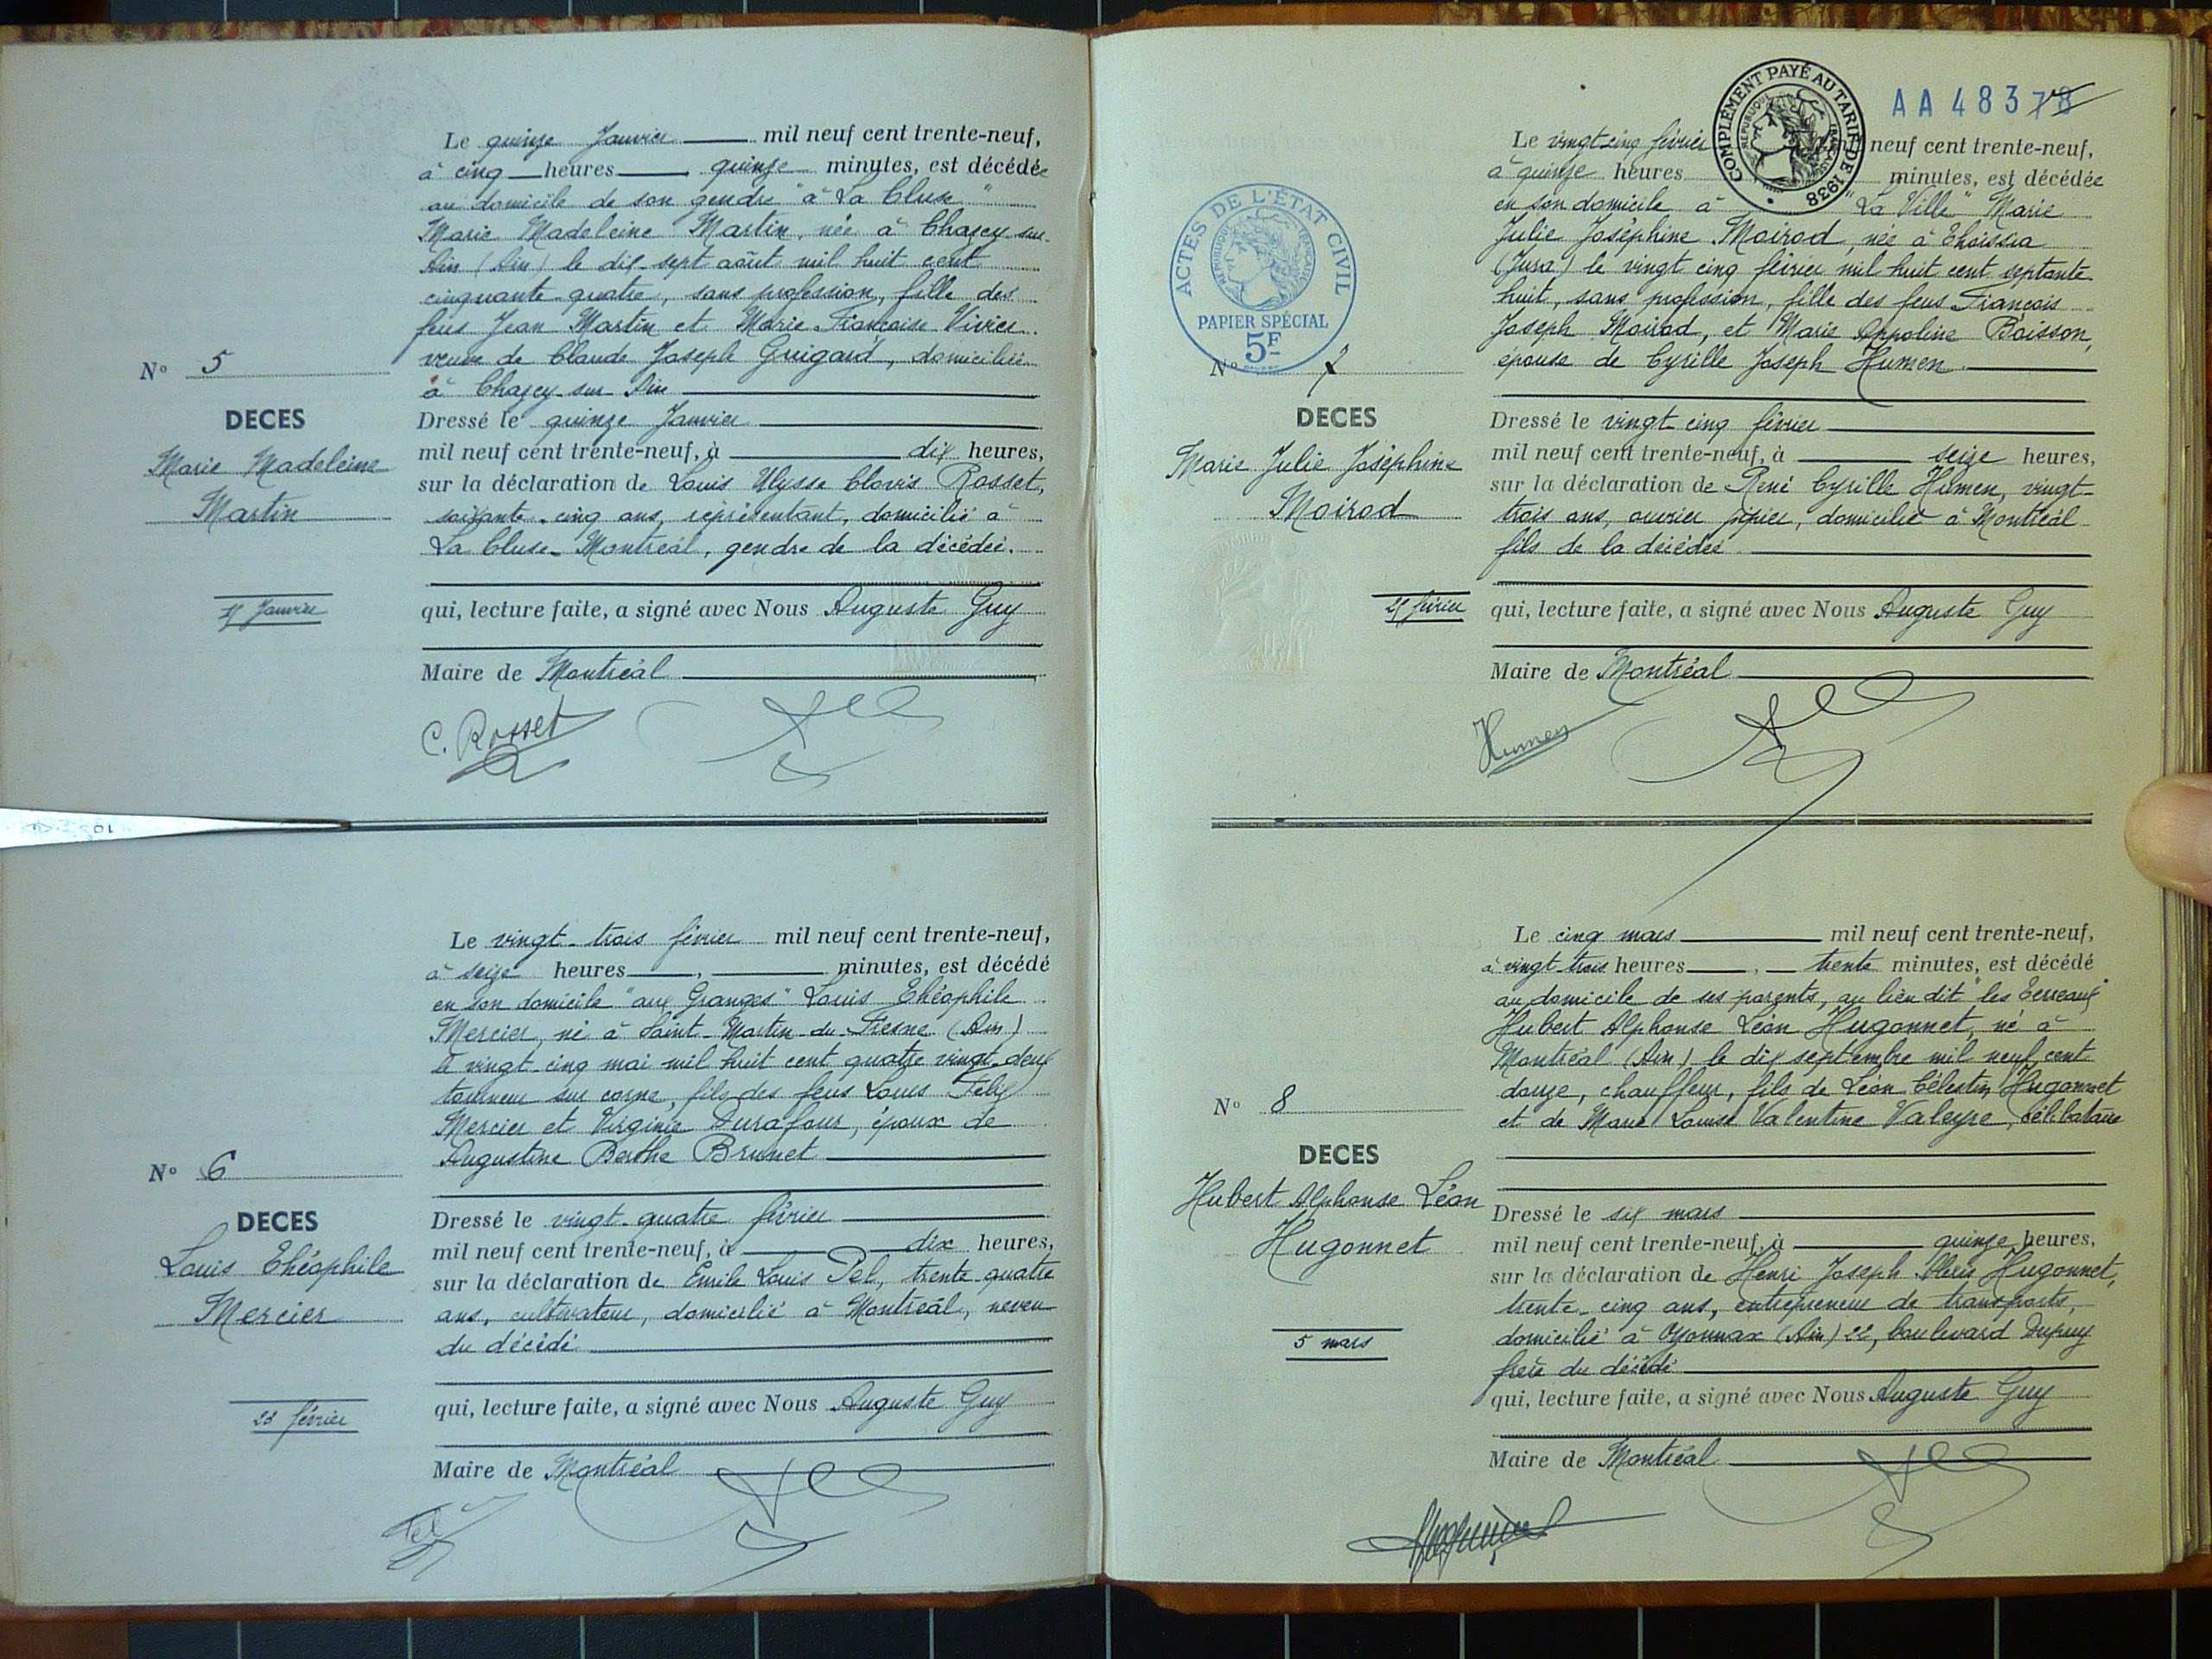 Le quinze Janvier mil neuf cent trente-neuf,
à cinq heures, quinze minutes, est décédée
au domicile de son gendre "à La Cluse"
Marie Madeleine Martin, née à Chazey sur
Ain (Ain) le dix-sept août mil huit cent
cinquante-quatre, sans profession, fille des
feus Jean Martin et Marie Françoise Vivier
veuve de Claude Joseph Guigard, domiciliée
à Chazey-sur-Ain
Nº 5
DECES
Marie Madeleine
Martin
15 Janvier
Dressé le quinze Janvier
mil neuf cent trente-neuf, à dix heures,
sur la déclaration de Louis Ulysse Clovis Rosset,
soixante-cinq ans, représentant, domicilié à
La Cluse-Montréal, gendre de la décédée.
qui, lecture faite, a signé avec Nous Auguste Guy
Maire de Montréal
C. Rosset
Le vingt-trois février mil neuf cent trente-neuf,
à seize heures, minutes, est décédé
en son domicile "aux Granges" Louis Théophile
Mercier, né à Saint-Martin-du-Fresne (Ain)
le vingt-cinq mai mil huit cent quatre vingt-deux
tourneur sur corne, fils des feus Louis Félix
Mercier et Virginie Durafour, époux de
Augustine Berthe Brunet
Nº 6
DECES
Louis Théophile
Mercier
23 février
Dressé le vingt-quatre février
mil neuf cent trente-neuf, à dix heures,
sur la déclaration de Emile Louis Pel, trente-quatre
ans, cultivateur, domicilié à Montréal, neveu
du décédé
qui, lecture faite, a signé avec Nous Auguste Guy
Maire de Montréal
Pel
AA 48378
COMPLÉMENT PAYÉ AU TARIF DE 1938
RÉPUBLIQUE FRANÇAISE
Le vingt-cinq février neuf cent trente-neuf,
à quinze heures minutes, est décédée
en son domicile à "La Ville" Marie
Julie Joséphine Moirod, née à Thoissia
(Jura) le vingt cinq février mil huit cent septante
huit, sans profession, fille des feus François
Joseph Moirod, et Marie Appoline Boisson,
épouse de Cyrille Joseph Humen
ACTES DE L'ÉTAT CIVIL
RÉPUBLIQUE FRANÇAISE
PAPIER SPÉCIAL
5F
Nº 7
DECES
Marie Julie Joséphine
Moirod
25 février
Dressé le vingt cinq février
mil neuf cent trente-neuf, à seize heures,
sur la déclaration de René Cyrille Humen, vingt-
trois ans, ouvrier pipier, domicilié à Montréal
fils de la décédée
qui, lecture faite, a signé avec Nous Auguste Guy
Maire de Montréal
Humen
Le cinq mars mil neuf cent trente-neuf,
à vingt trois heures, trente minutes, est décédé
au domicile de ses parents, au lieu dit "les Terreaux"
Hubert Alphonse Léon Hugonnet, né à
Montréal (Ain) le dix septembre mil neuf cent
douze, chauffeur, fils de Léon Célestin Hugonnet
et de Marie Louise Valentine Valeyre, célibataire
Nº 8
DECES
Hubert Alphonse Léon
Hugonnet
5 mars
Dressé le six mars
mil neuf cent trente-neuf, à quinze heures,
sur la déclaration de Henri Joseph Alexis Hugonnet,
trente-cinq ans, entrepreneur de transports,
domicilié à Oyonnax (Ain) 22, boulevard Dupuy
frère du décédé
qui, lecture faite, a signé avec Nous Auguste Guy
Maire de Montréal